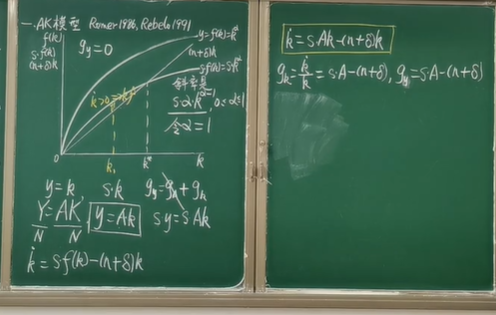 一.AK模型 Romer1986, Rebelo1991
f(k)
s·f(k)
(n+δ)k
g_y=0
y=f(k)=k^α
(n+δ)k
s·f(k)=s·k^α
斜率是
s·α·k^(α-1), 0<α≤1
令α=1
k̇>0
0
k₁
k*
k
y=k
s·k
Y/N=AK/N
y=Ak
sy=sAk
k̇=sf(k)-(n+δ)k
k̇=sAk-(n+δ)k
g_k=k̇/k=s·A-(n+δ), g_y=s·A-(n+δ)